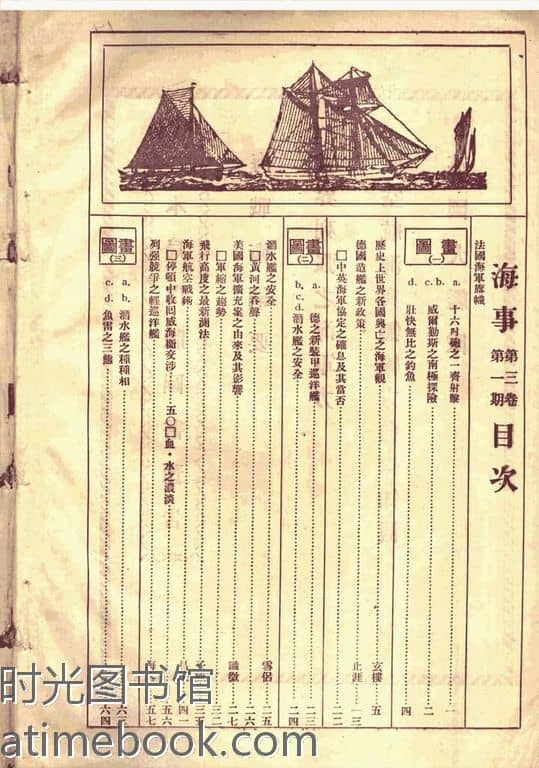 海事 第三卷 第一期 目次
法國海軍旗幟
畫圖(一)
a. 十六吋砲之一齊射擊 一
b. c. 威爾勒斯之南極探險 二
d. 壯快無比之釣魚 四
歷史上世界各國興亡之海軍觀 玄樓 五
德國造艦之新政策 止涯 一三
□中英海軍協定之確息及其當否 二二
畫圖(二)
a. 德之新裝甲巡洋艦 二三
b. c. d. 潛水艦之安全 二四
潛水艦之安全 雪侶 二五
□黃河之吞聲 二六
美國海軍擴充案之由來及其影響 識微 二七
□軍縮之趨勢 三二
飛行高度之最新測法 三五
海軍航空戰術 四一
□停頓中收回威海衞交涉 五〇
□血・水之濃淡 五六
列強競爭之輕巡洋艦 五七
畫圖(三)
a. b. 潛水艦之種種相 六三
c. d. 魚雷之三態 六四
时光图书馆
atimebook.com